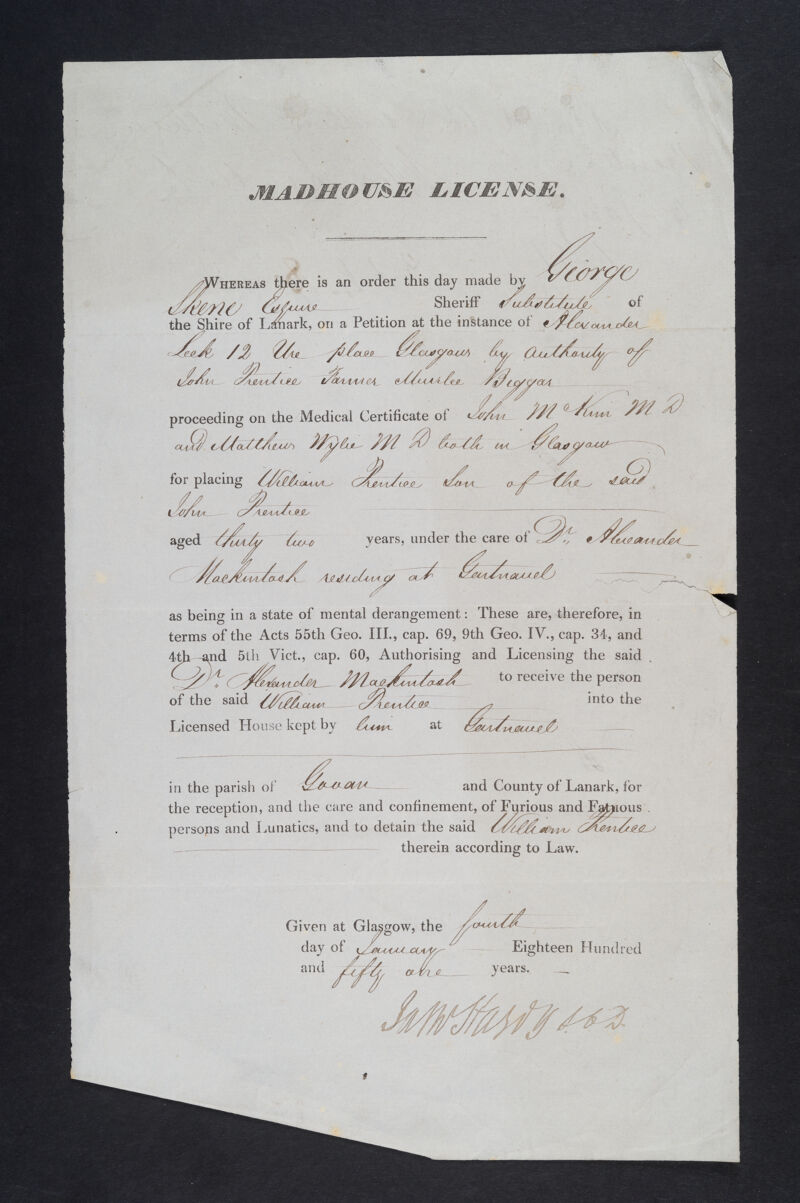 MADHOUSE LICENSE.
WHEREAS there is an order this day made by George
Skene Esquire Sheriff Substitute of
the Shire of Lanark, on a Petition at the instance of Alexander
Leek 12 Ure place Glasgow by authority of
John Prentice Farmer Muirlee Biggar
proceeding on the Medical Certificate of John McKim M D
and Matthew Wylie M D both in Glasgow
for placing William Prentice Son of the said
John Prentice
aged thirty two years, under the care of Dr. Alexander
Mackintosh residing at Gartnavel
as being in a state of mental derangement: These are, therefore, in
terms of the Acts 55th Geo. III., cap. 69, 9th Geo. IV., cap. 34, and
4th and 5th Vict., cap. 60, Authorising and Licensing the said
Dr. Alexander Mackintosh to receive the person
of the said William Prentice into the
Licensed House kept by him at Gartnavel
in the parish of Govan and County of Lanark, for
the reception, and the care and confinement, of Furious and Fatuous
persons and Lunatics, and to detain the said William Prentice
therein according to Law.
Given at Glasgow, the fourth
day of January Eighteen Hundred
and fifty one years.
Hardy